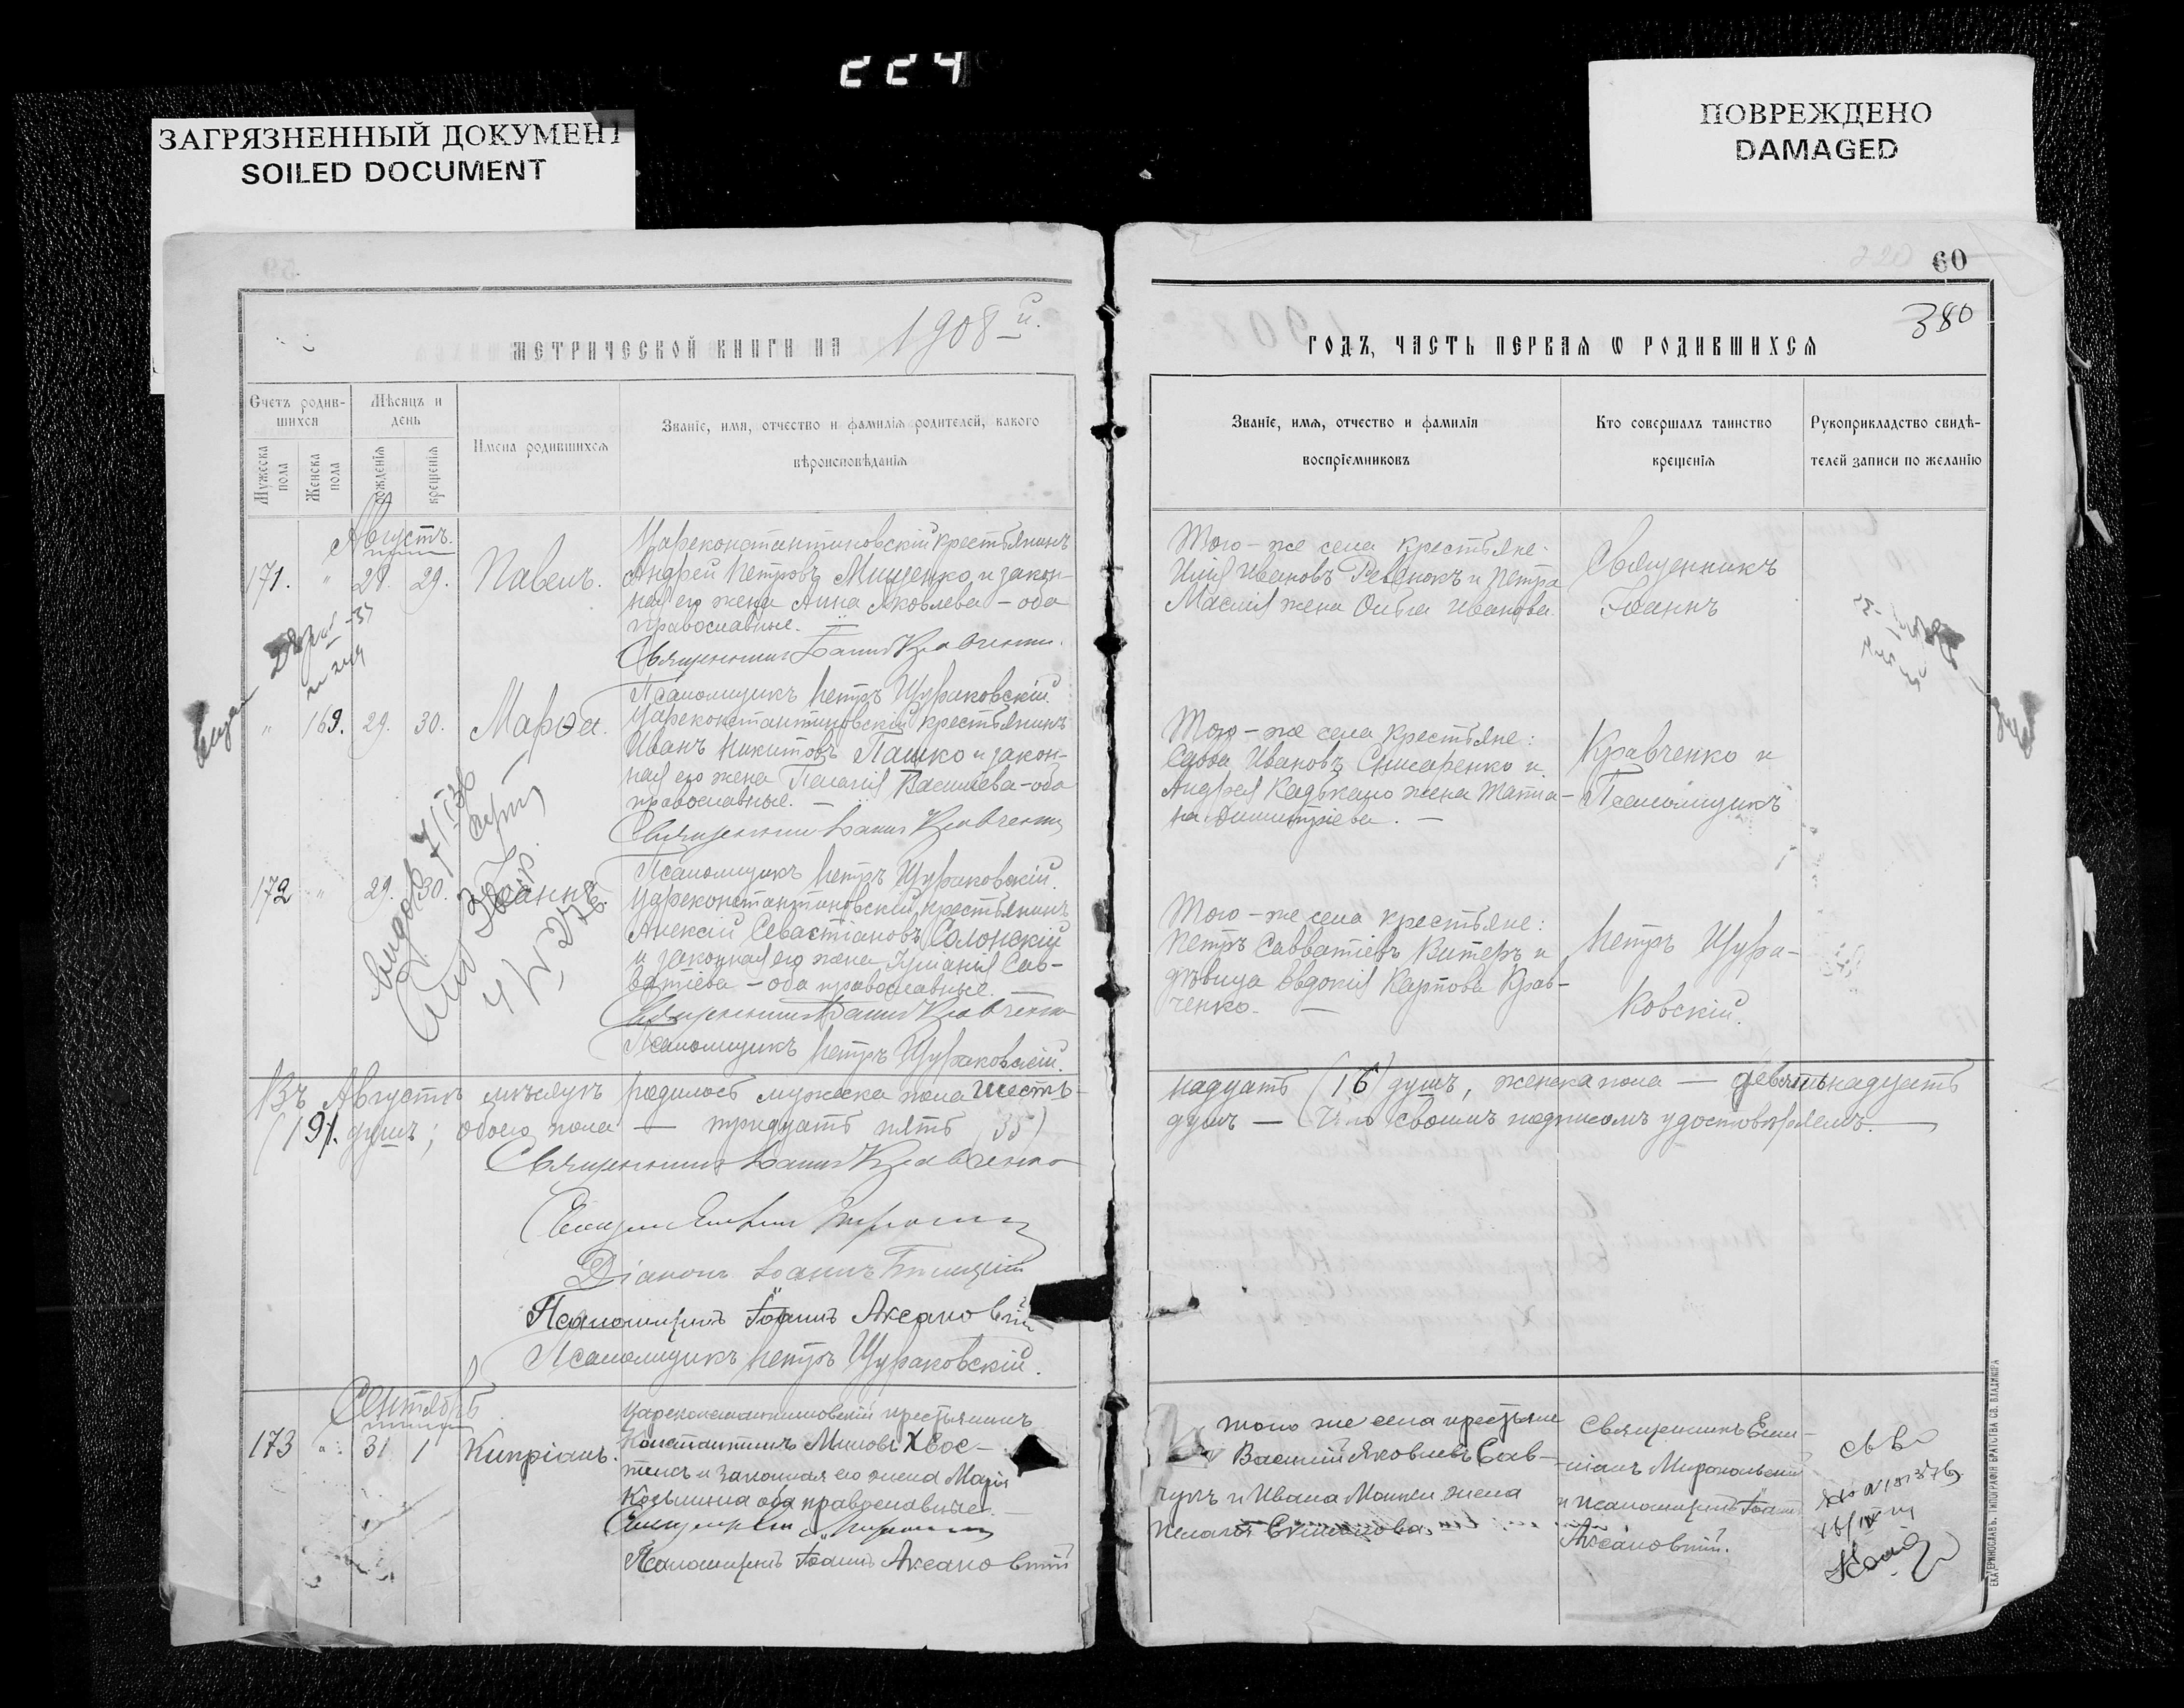 ССЧ
ЗАГРЯЗНЕННЫЙ ДОКУМЕНТ
SOILED DOCUMENT
ПОВРЕЖДЕНО
DAMAGED
60
380
МЕТРИЧЕСКОЙ КНИГИ НА 1908 й.
Счетъ родив-
шихся
Мѣсяцъ и
день
Мужеска
пола
Женска
пола
рожденія
крещенія
Имена родившихся
Званіе, имя, отчество и фамилія родителей, какого
вѣроисповѣданія
Августъ.
171. " 28. 29. Павелъ.
Цареконстантиновскій крестьянинъ
Андрей Петровъ Мищенко и закон-
ная его жена Анна Яковлева – оба
православные. –
Священникъ Іоаннъ Кравченко.
Псаломщикъ Петръ Щураковскій.
" 169. 29. 30. Марѳа.
Цареконстантиновскій крестьянинъ
Иванъ Никитовъ Пашко и закон-
ная его жена Пелагія Васильева – оба
православные. –
Священникъ Іоаннъ Кравченко
Псаломщикъ Петръ Щураковскій.
172 " 29. 30. Іоаннъ.
Цареконстантиновскій крестьянинъ
Алексій Севастіановъ Солонскій
и законная его жена Іуліанія Сав-
ватіева – оба православные.
Священникъ Іоаннъ Кравченко
Псаломщикъ Петръ Щураковскій.
Въ Августѣ мѣсяцѣ родилось мужеска пола шестъ-
(19). душъ; обоего пола — тридцать пять (35)
Священникъ Іоаннъ Кравченко
Діаконъ Іоаннъ
Псаломщикъ Іоаннъ Аксановскій
Псаломщикъ Петръ Щураковскій.
Сентябрь
173 " 31 1 Кипріанъ.
Цареконстантиновскій крестьянинъ
Константинъ Миновъ Хвос-
тикъ и законная его жена Марія
Козьмина оба православные. –
Псаломщикъ Іоаннъ Аксановскій
ГОДЪ, ЧАСТЬ ПЕРВАЯ Ѡ РОДИВШИХСЯ
Званіе, имя, отчество и фамилія
воспріемниковъ
Кто совершалъ таинство
крещенія
Рукоприкладство свидѣ-
телей записи по желанію
Того-же села крестьяне:
Илія Ивановъ Ревенокъ и Петра
Маслія жена Ольга Иванова.
Священникъ
Іоаннъ
Того-же села крестьяне:
Савва Ивановъ Снисаренко и
Андрея Кадькало жена Татіа-
на Димитріева. –
Кравченко и
Псаломщикъ
Того-же села крестьяне:
Петръ Савватіевъ Витеръ и
дѣвица Евдокія Карпова Крав-
ченко. –
Петръ Щура-
ковскій.
надцать (16) душъ, женска пола — девятьнадцать
душъ — Что своимъ подписомъ удостовѣряемъ. —
того же села крестьяне
Василій Яковлевъ Сав-
чукъ и Ивана жена
Пелагія
Священникъ
и псаломщикъ Іоаннъ
Аксановскій.
ЕКАТЕРИНОСЛАВЪ. ТИПОГРАФІЯ БРАТСТВА СВ. ВЛАДИМІРА